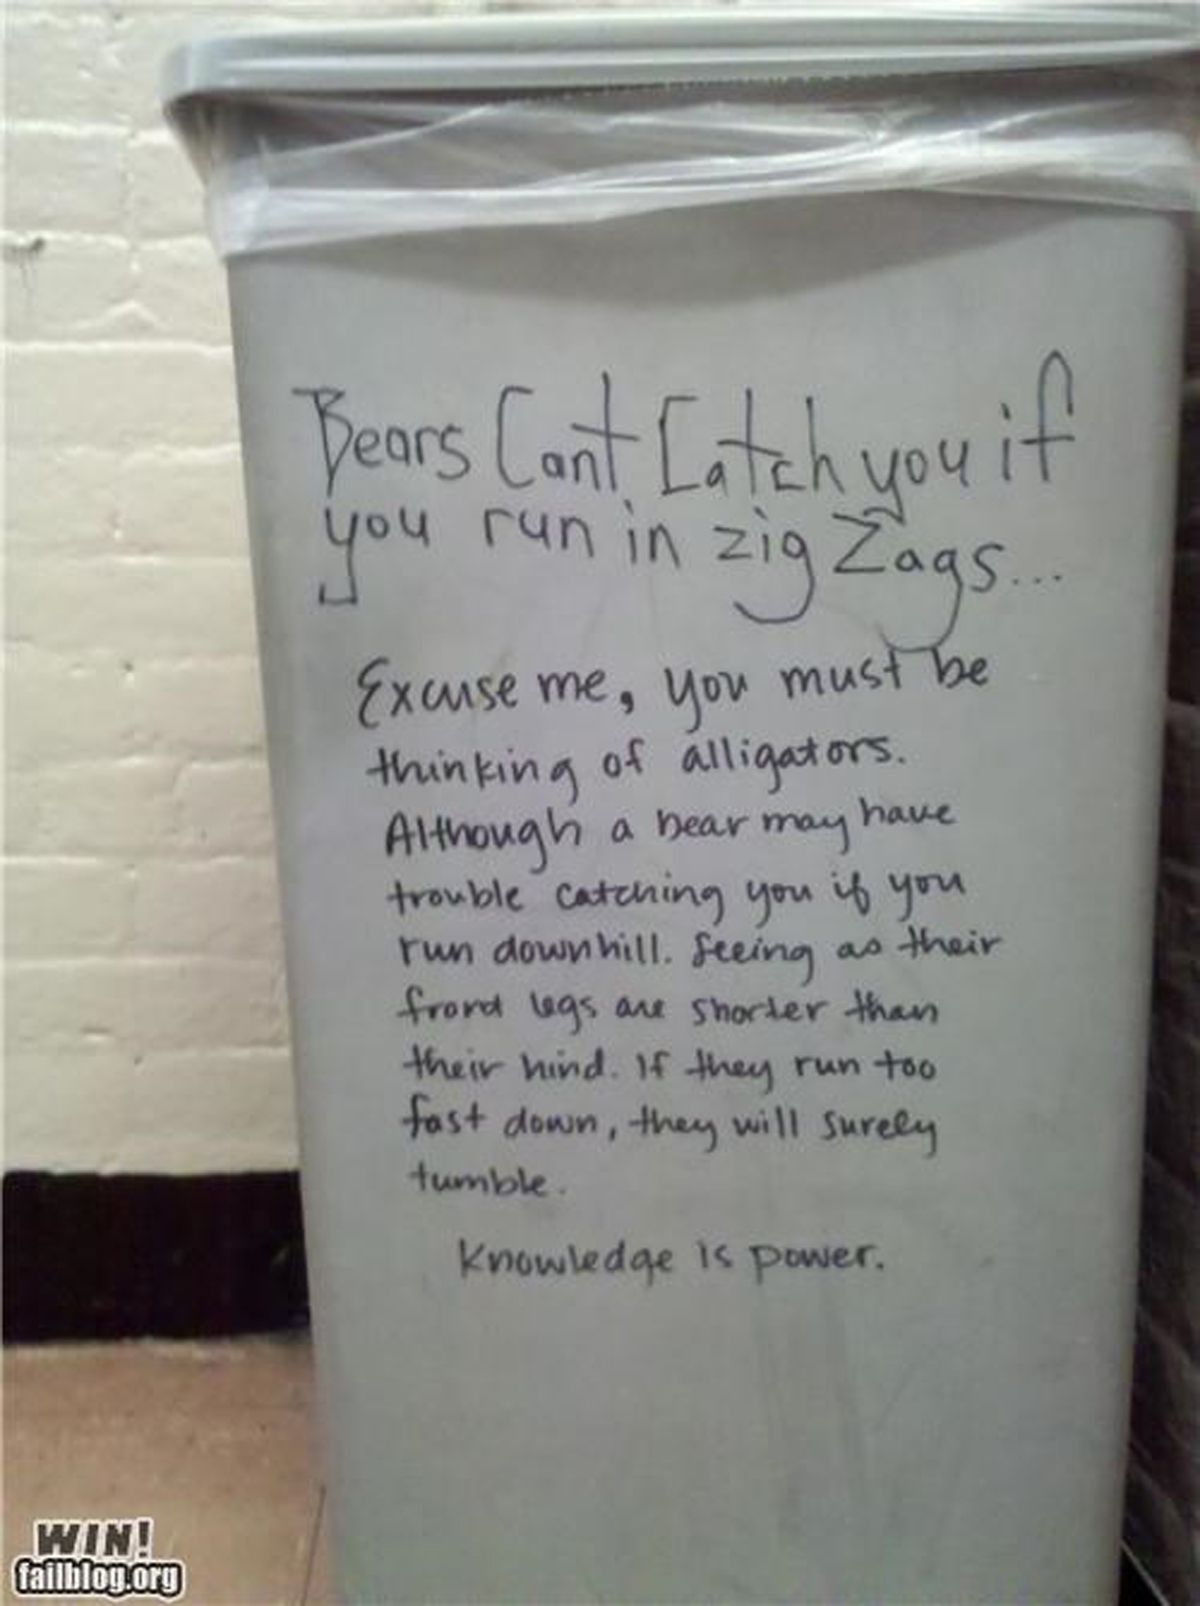 Bears Can't Catch you if
you run in zig Zags...
Excuse me, you must be
thinking of alligators.
Although a bear may have
trouble catching you if you
run downhill. Seeing as their
legs are shorter than
their hind. If they run too
fast down, they will surely
tumble.
Knowledge is power.
WIN!
failblog.org